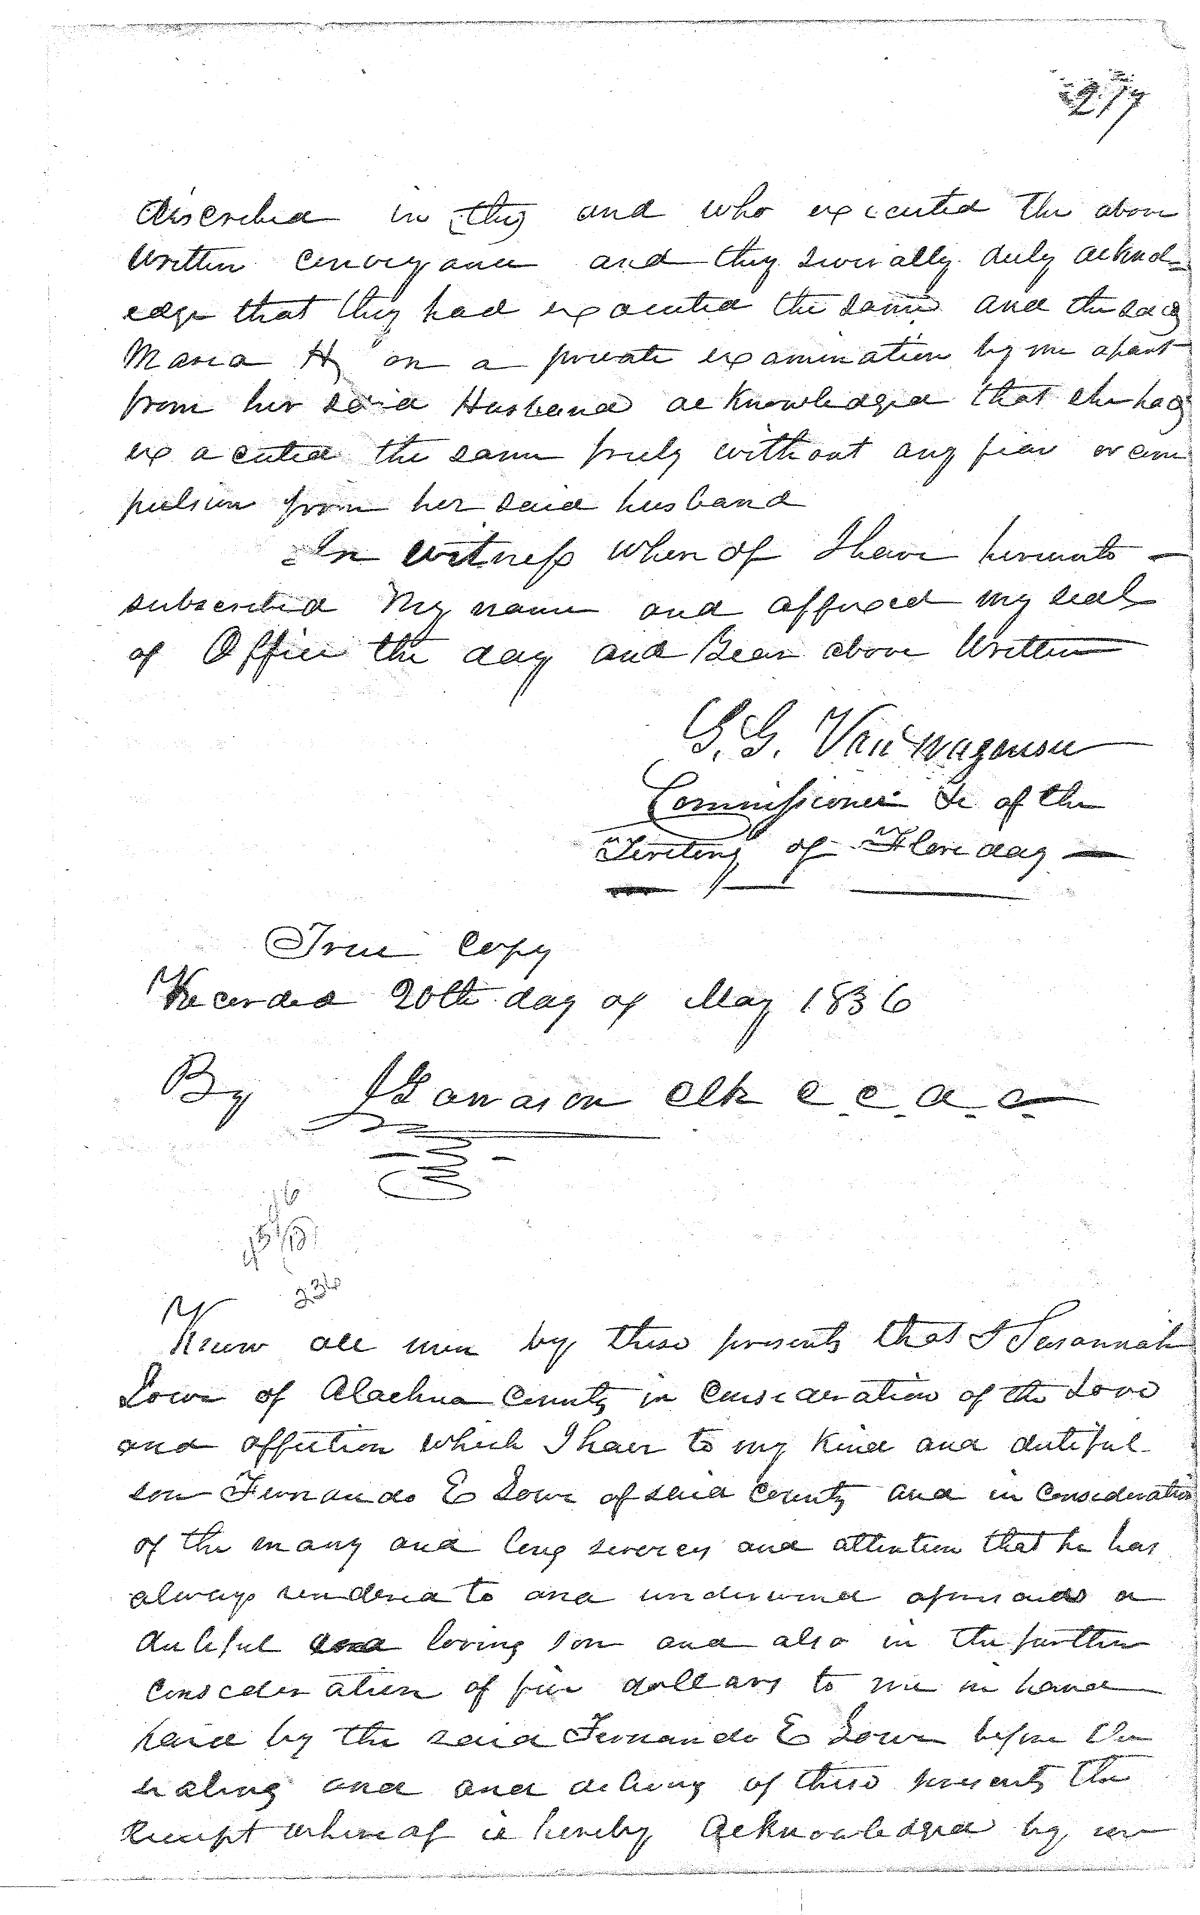 217
discribed in they and who executed the above
written conveyance and they severally duly acknol=
edge that they had exacuted the same and the said
Maria H on a private examination by me apart
from her said Husband acknowledged that she had
ex acuted the same freely without any fear or com
pulsion from her said husband
In witness where of I have hereunto
subscribed My name and affixed my seal
of Office the day and Year above Written
G. G. Van Wagenen
Commissioner &c of the
Territory of Floriday
True Copy
Recorded 20th day of May 1836
By Clk C. C. A. C.
236
Know all men by these presents that I Susannah
Lowe of Alachua County in consideration of the Love
and affection which I have to my kind and dutiful
son Fernando E Lowe of said County and in consideration
of the many and long services and attention that he has
always rendered to and as a
dutiful and loving son and also in the further
consideration of five dollars to me in hand
paid by the said Fernando E Lowe before the
sealing and and delivery of these presents the
Receipt where of is hereby Acknowledged by me